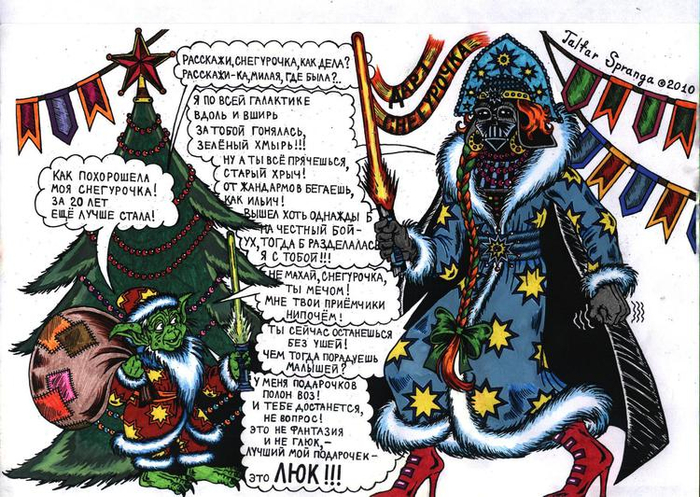 Talfar Spranga ©2010
ДАРТ
СНЕГУРОЧКА
РАССКАЖИ, СНЕГУРОЧКА, КАК ДЕЛА?
РАССКАЖИ-КА, МИЛАЯ, ГДЕ БЫЛА?..
Я ПО ВСЕЙ ГАЛАКТИКЕ
ВДОЛЬ И ВШИРЬ
ЗА ТОБОЙ ГОНЯЛАСЬ,
ЗЕЛЁНЫЙ ХМЫРЬ!!!
НУ А ТЫ ВСЁ ПРЯЧЕШЬСЯ,
СТАРЫЙ ХРЫЧ!
ОТ ЖАНДАРМОВ БЕГАЕШЬ,
КАК ИЛЬИЧ!
ВЫШЕЛ ХОТЬ ОДНАЖДЫ Б
НА ЧЕСТНЫЙ БОЙ-
ТУХ, ТОГДА Б РАЗДЕЛАЛАСЬ
Я С ТОБОЙ!!!
КАК ПОХОРОШЕЛА
МОЯ СНЕГУРОЧКА!
ЗА 20 ЛЕТ
ЕЩЁ ЛУЧШЕ СТАЛА!
НЕ МАХАЙ, СНЕГУРОЧКА,
ТЫ МЕЧОМ!
МНЕ ТВОИ ПРИЁМЧИКИ
НИПОЧЁМ!
ТЫ СЕЙЧАС ОСТАНЕШЬСЯ
БЕЗ УШЕЙ!
ЧЕМ ТОГДА ПОРАДУЕШЬ
МАЛЫШЕЙ?
У МЕНЯ ПОДАРОЧКОВ
ПОЛОН ВОЗ!
И ТЕБЕ ДОСТАНЕТСЯ,
НЕ ВОПРОС!
ЭТО НЕ ФАНТАЗИЯ
И НЕ ГЛЮК,-
ЛУЧШИЙ МОЙ ПОДАРОЧЕК-
ЭТО ЛЮК!!!